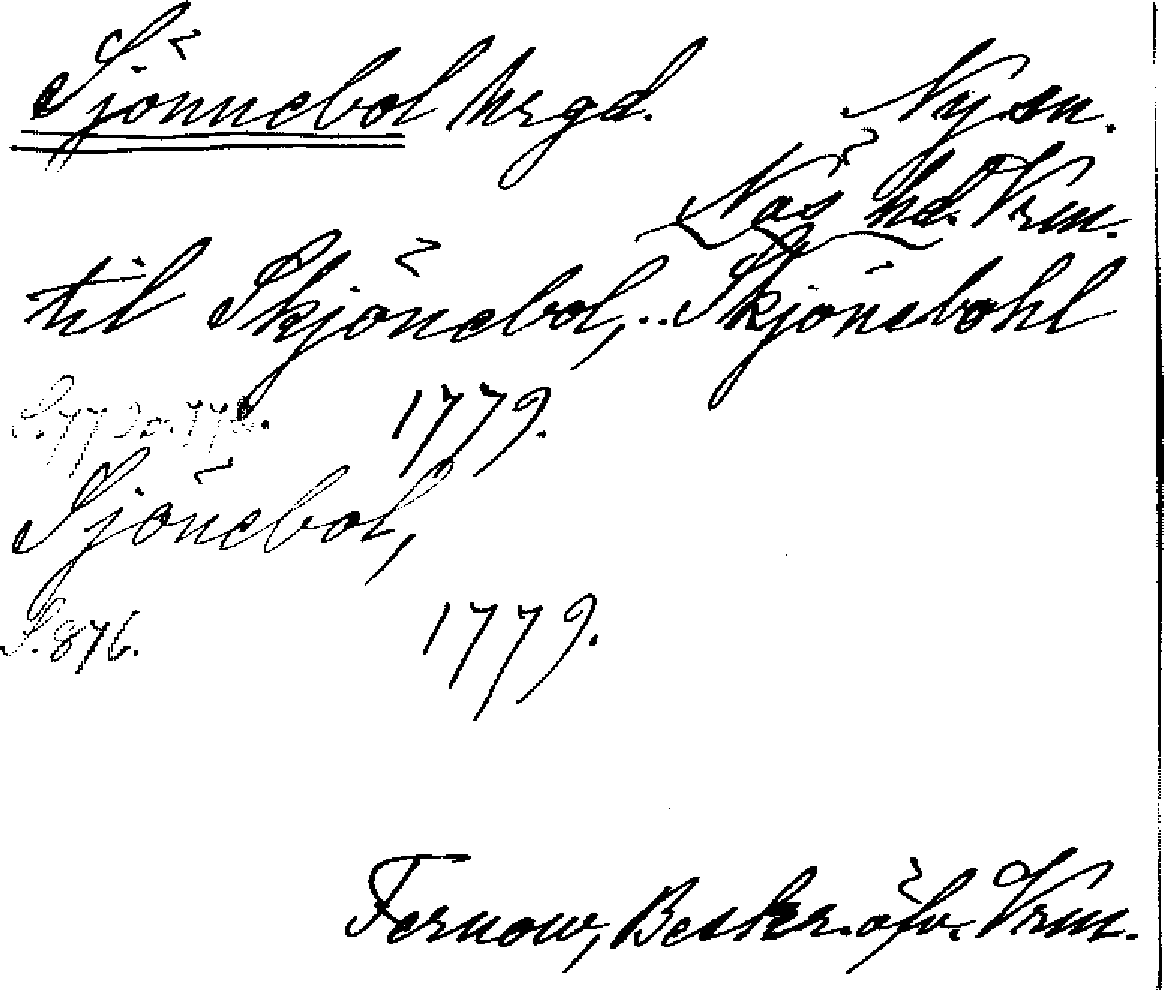 Sjönnebol hrgd. Ny sn.
Näs hd. Vrm.
til Skjönebol, Skjönebohl
1779.
Sjönebol,
S. 876. 1779.
Fernow, Beskr. öfv. Vrm.